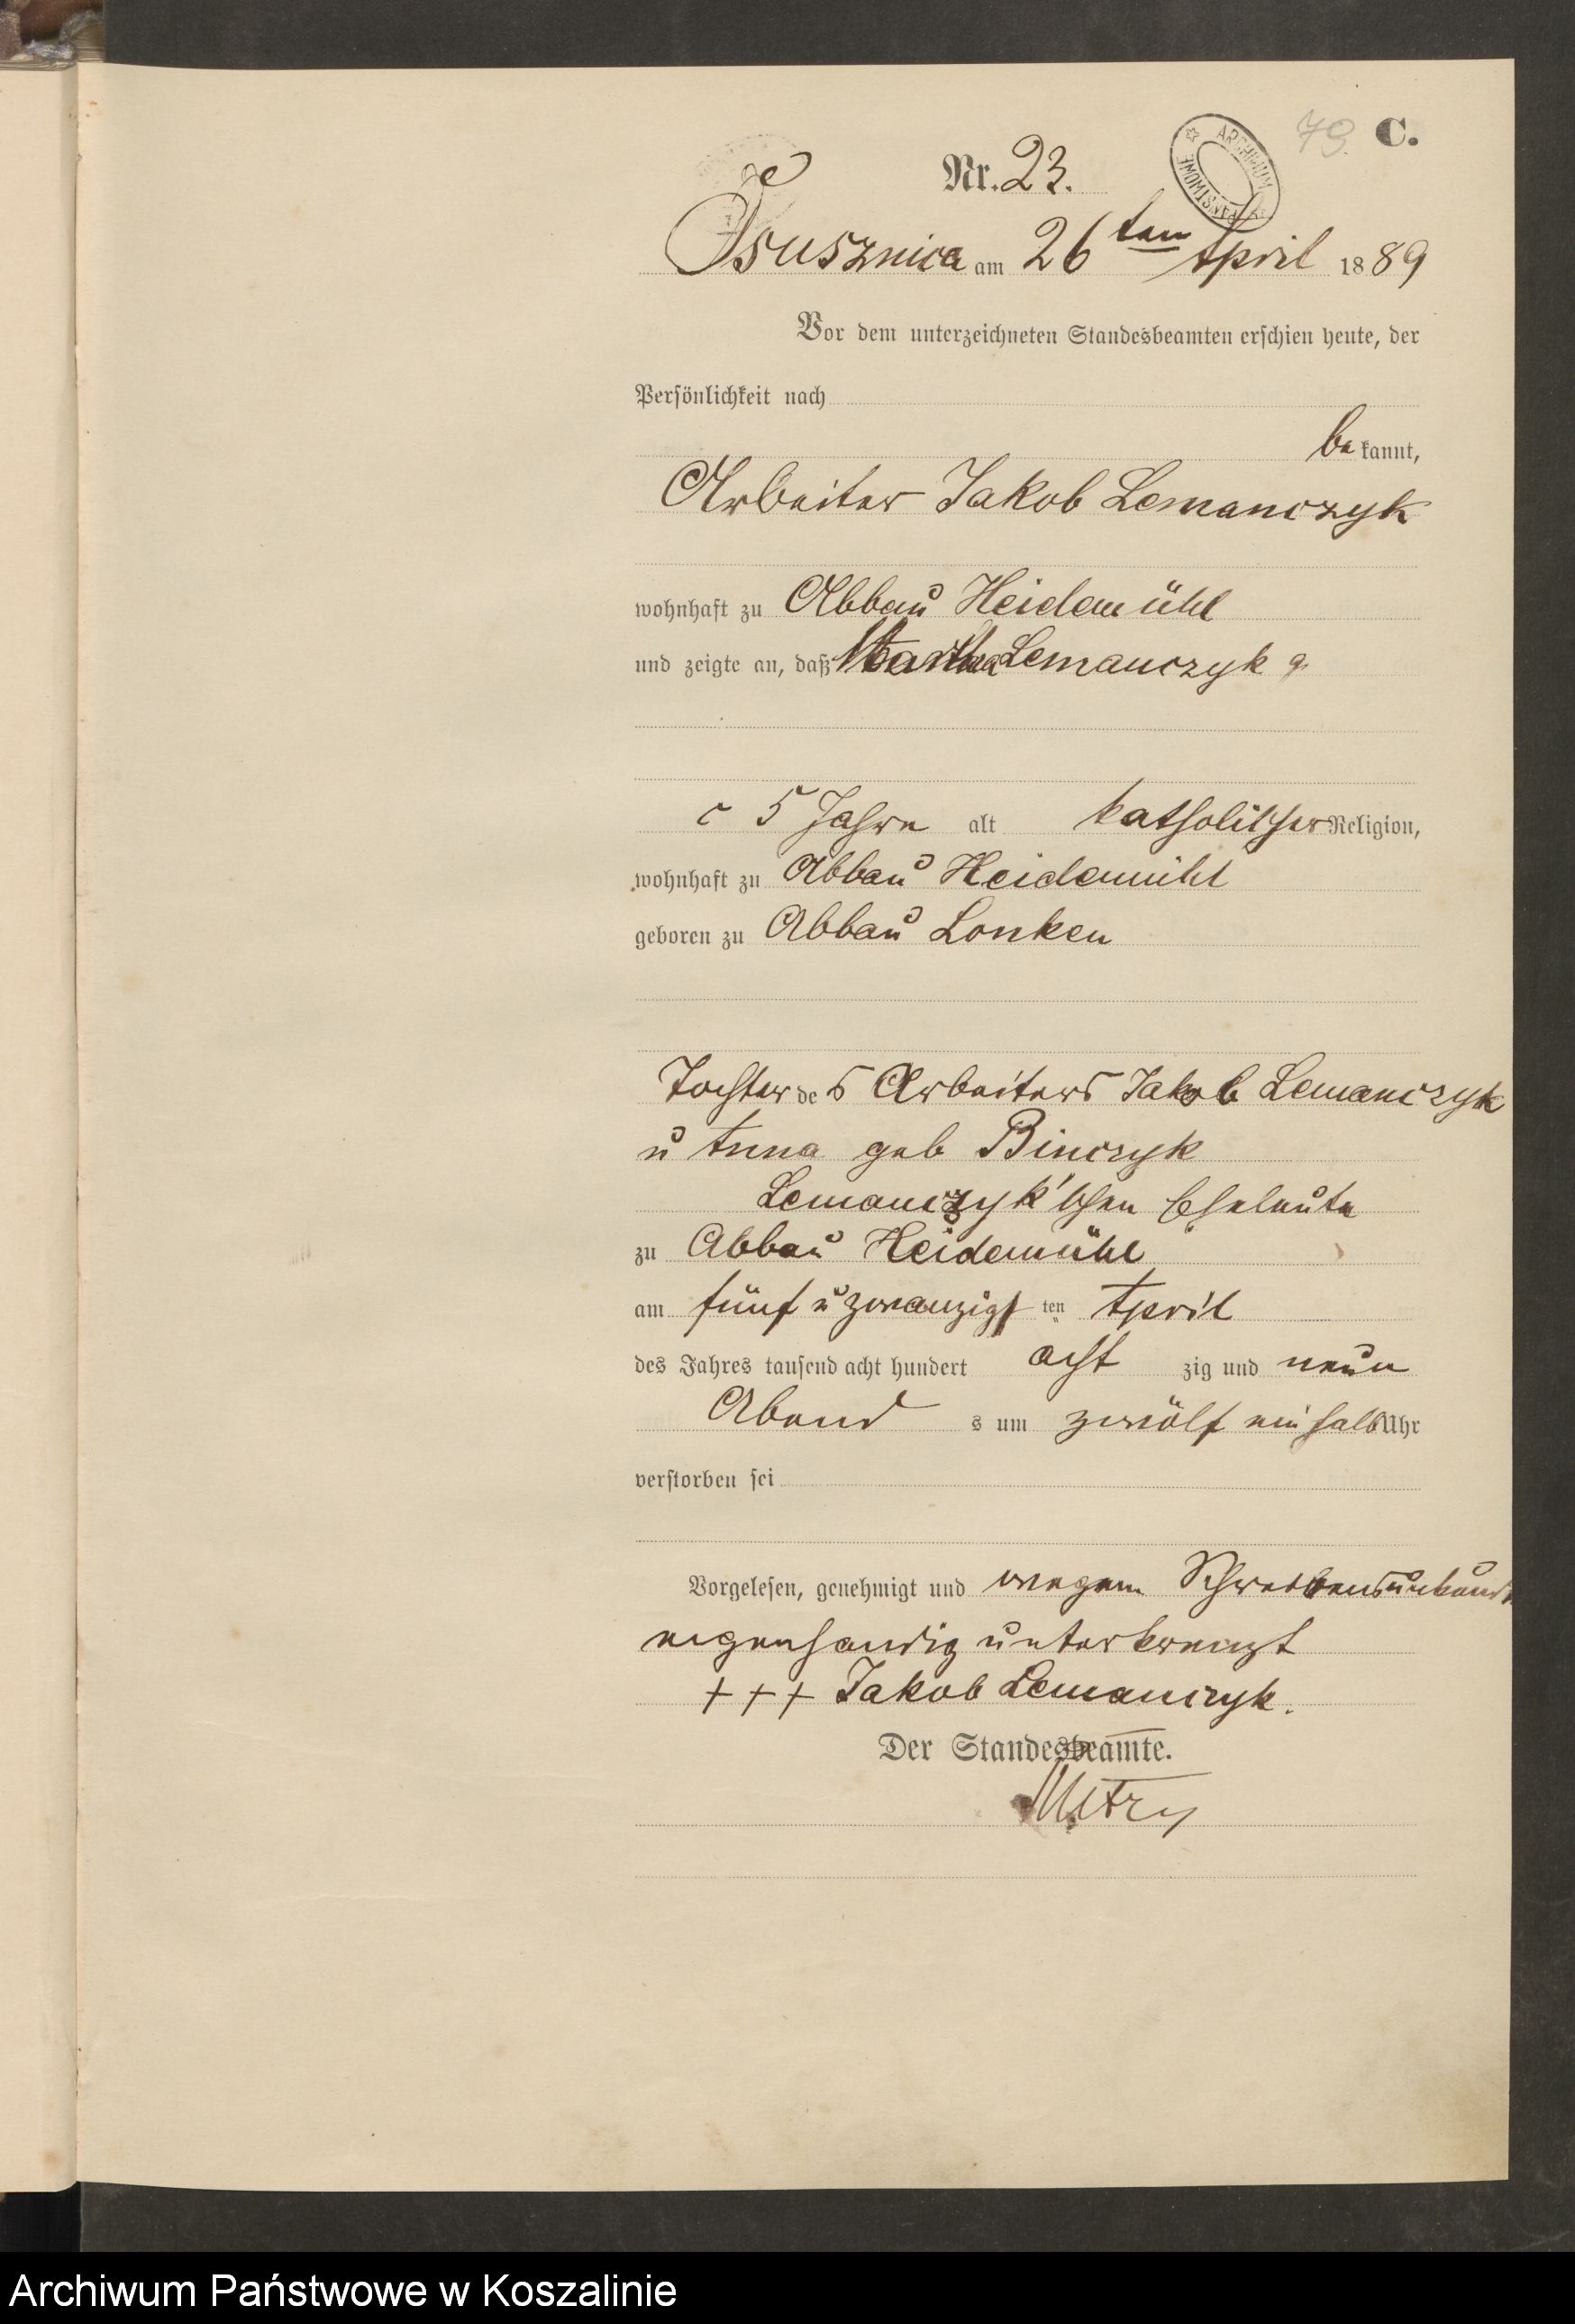 79. C.
ARCHIWUM PAŃSTWOWE
Nr. 23.
Osusznica am 26ten April 1889
Vor dem unterzeichneten Standesbeamten erschien heute, der
Persönlichkeit nach
be kannt,
Arbeiter Jakob Lemanczyk
wohnhaft zu Abbau Heidemühl
und zeigte an, daß Martha Lemanczyk
5 Jahre alt katholischer Religion,
wohnhaft zu Abbau Heidemühl
geboren zu Abbau Lonken
Tochter des Arbeiters Jakob Lemanczyk
u Anna geb Binczyk
Lemanczyk'schen Eheleute
zu Abbau Heidemühl
am fünf u zwanzigsten April
des Jahres tausend acht hundert acht zig und neun
Abend s um zwölf ein halb Uhr
verstorben sei
Vorgelesen, genehmigt und wegen Schreibensunkunde
eigenhandig unterkreuzt
+++ Jakob Lemanczyk.
Der Standesbeamte.
Archiwum Państwowe w Koszalinie